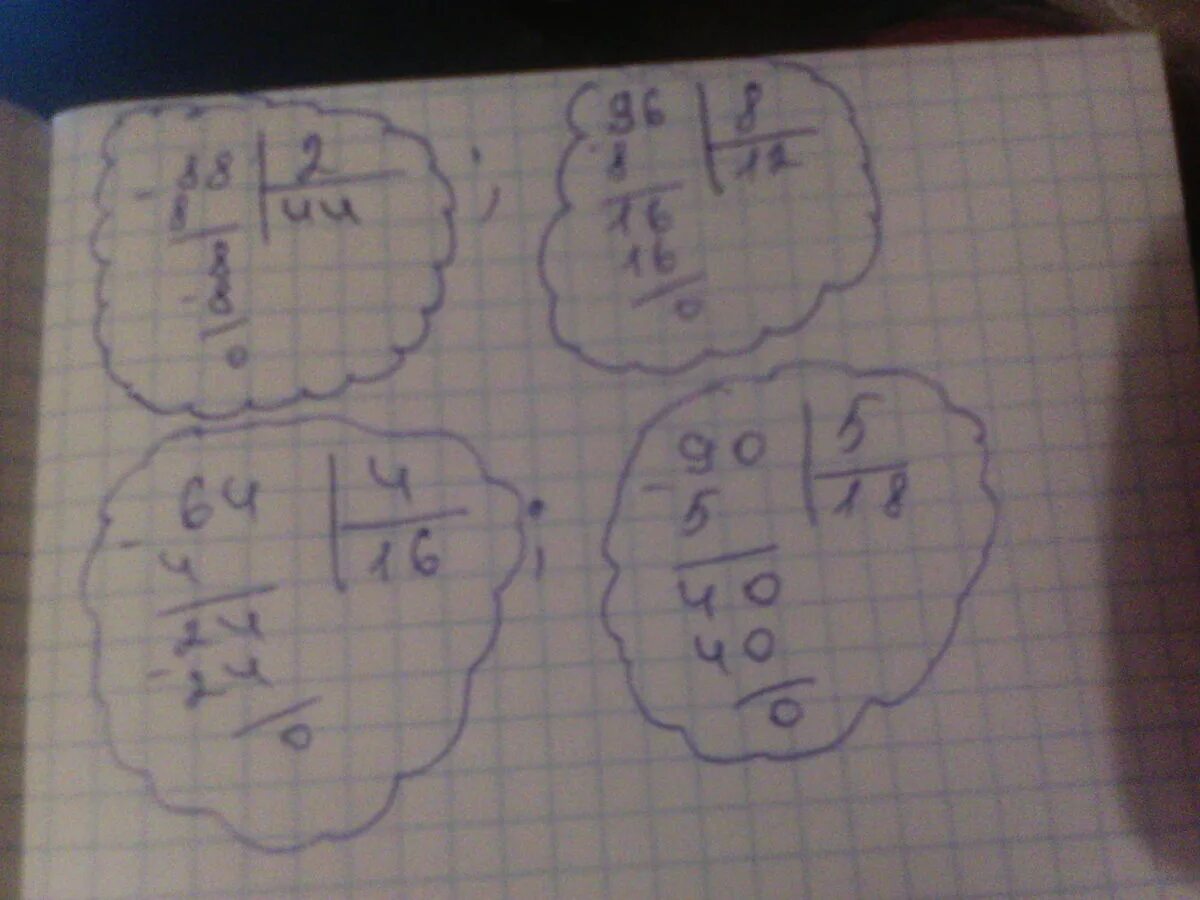 - 88 | 2
8 | 44
88
- 8
0
;
96 | 8
- 8 | 12
16
16
0
64 | 4
- 4 | 16
24
- 24
0
;
90 | 5
- 5 | 18
40
40
0